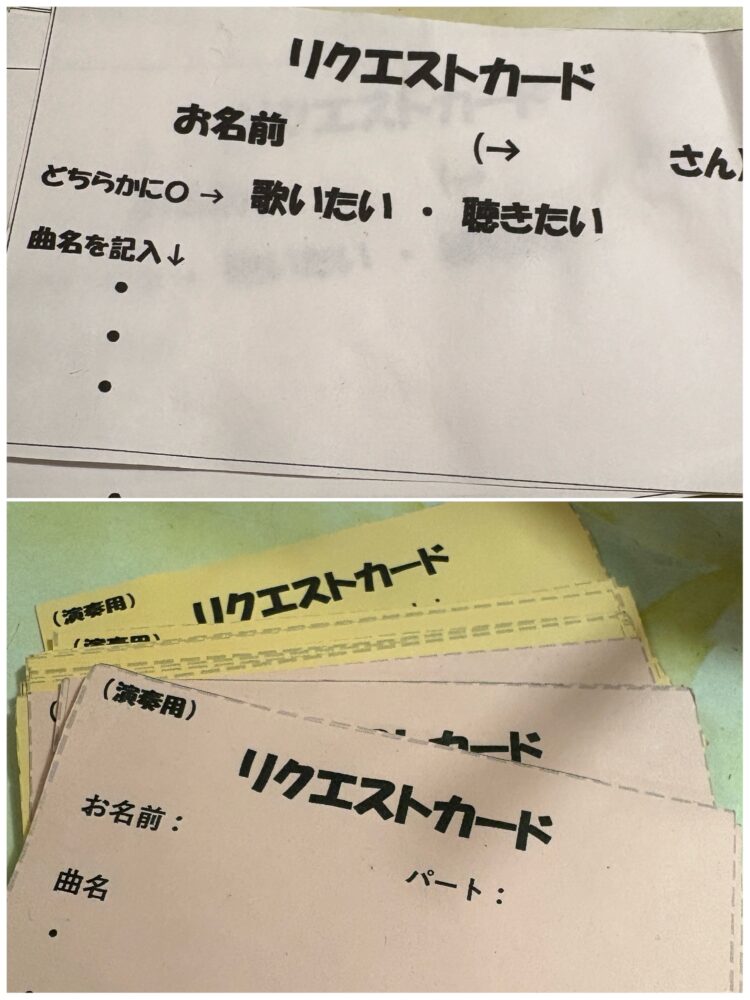 リクエストカード
お名前 (→ さん)
どちらかに〇 → 歌いたい ・ 聴きたい
曲名を記入↓
・
・
・
・
(演奏用) リクエストカード
(演奏用)
カード
(演奏用)
リクエストカード
お名前:
曲名 パート:
・